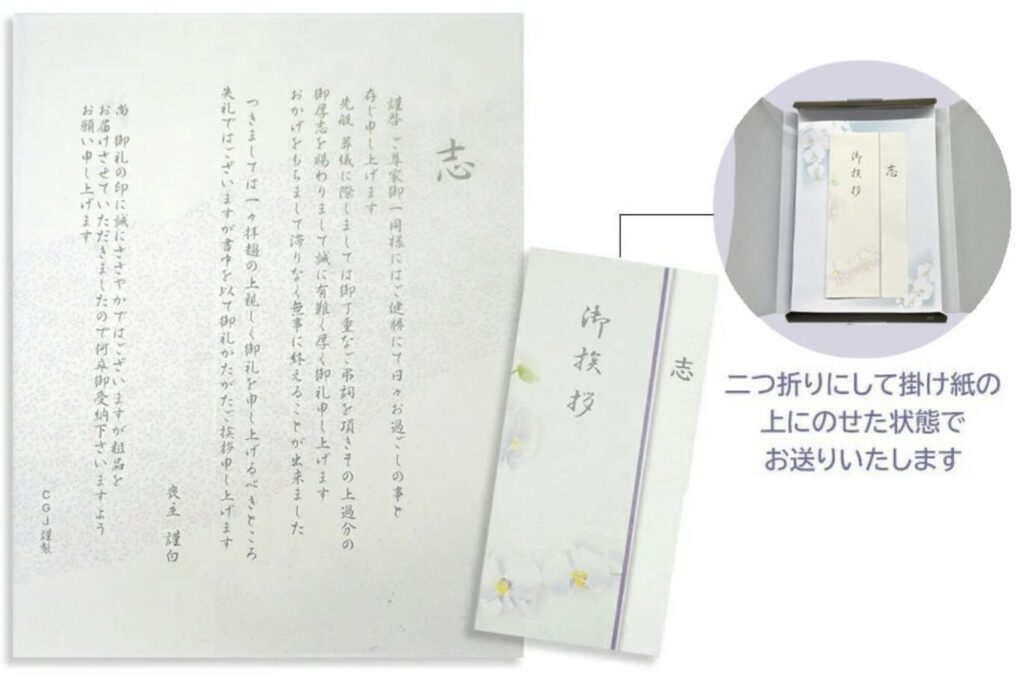 志
謹啓 ご尊家御一同様にはご健勝にて日々お過ごしの事と
存じ申し上げます
先般 葬儀に際しましては御丁重なご弔詞を頂きその上過分の
御厚志を賜わりまして誠に有難く厚く御礼申し上げます
おかげをもちまして滞りなく無事に終えることが出来ました
つきましては一々拝趨の上親しく御礼を申し上げるべきところ
失礼ではございますが書中を以て御礼かたがたご挨拶申し上げます
喪主 謹白
尚 御礼の印に誠にささやかではございますが粗品を
お届けさせていただきましたので何卒御受納下さいますよう
お願い申し上げます
CGJ謹製
志
御挨拶
志
御挨拶
二つ折りにして掛け紙の
上にのせた状態で
お送りいたします